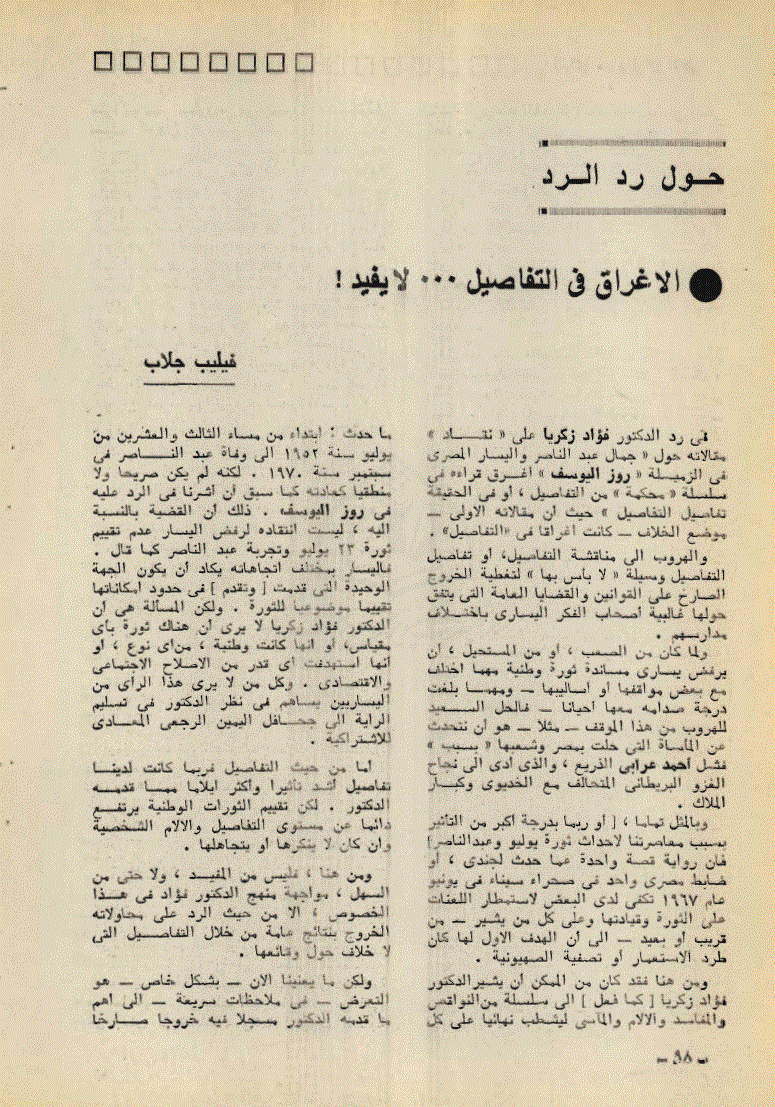 حـول رد الـرد
● الاغراق فى التفاصيل ... لا يفيد !
فيليب جلاب
فى رد الدكتور فؤاد زكريا على « نقـــاد »
مقالاته حول « جمال عبد الناصر واليسار المصرى
فى الزميلة « روز اليوسف » أغـرق قراءه فى
سلسلة « محكمة » من التفاصيل ، أو فى الحقيقة
تفاصيل التفاصيل » حيث أن مقالاته الاولى —
موضع الخلاف — كانت أغراقا فى «التفاصيل» .
والهروب الى مناقشة التفاصيل، أو تفاصيل
التفاصيل وسيلة « لا بأس بها » لتغطية الخروج
الصارخ على القوانين والقضايا العامة التى يتفق
حولها غالبية أصحاب الفكر اليسارى باختـلاف
مدارسهم .
ولما كان من الصعب ، أو من المستحيل ، أن
يرفض يسارى مساندة ثورة وطنية مهما اختلف
مع بعض مواقفها أو أساليبها — ومهمـا بلغت
درجة صدامه معها أحيانا — فالحل السـعيد
للهروب من هذا الموقف — مثلا — هو أن نتحدث
عن المأساة التى حلت بمصر وشعبها « بسبب »
فشل أحمد عرابى الذريع ، والذى أدى الى نجاح
الغزو البريطانى المتحالف مع الخديوى وكبـار
الملاك .
وبالمثل تماما ، [ أو ربما بدرجة أكبر من التأثير
بسبب معاصرتنا لاحداث ثورة يوليو وعبدالناصر]
فان رواية قصة واحدة عما حدث لجندى ، أو
ضابط مصرى واحد فى صحراء سيناء فى يونيو
عام ١٩٦٧ تكفى لدى البعض لاستمطار اللعنات
على الثورة وقيادتها وعلى كل من يشـير — من
قريب أو بعيد — الى أن الهدف الاول لها كان
طرد الاستعمار أو تصفية الصهيونية .
ومن هنا فقد كان من الممكن أن يشيرالدكتور
فؤاد زكريا [ كما فعل ] الى سلسلة من النواقص
والمفاسد والالام والمآسى ليشطب نهائيا على كل
ما حدث : ابتداء من مساء الثالث والعشرين من
يوليو سنة ١٩٥٢ الى وفاة عبد النـــاصر فى
سبتمبر سنة ١٩٧٠ . لكنه لم يكن صريحا ولا
منطقيا كعادته كما سبق أن أشرنا فى الرد عليه
فى روز اليوسف . ذلك أن القضية بالنسبة
اليه ، ليست انتقاده لرفض اليسار عدم تقييم
ثورة ٢٣ يوليو وتجربة عبد الناصر كما قال .
فاليسار بمختلف اتجاهاته يكاد أن يكون الجهة
الوحيدة التى قدمت [ وتقدم ] فى حدود امكاناتها
تقييما موضوعيا للثورة . ولكن المسألة هى أن
الدكتور فؤاد زكريا لا يرى أن هناك ثورة بأى
مقياس، أو أنها كانت وطنية ، من أى نوع ، أو
أنها استهدفت أى قدر من الاصلاح الاجتماعى
والاقتصادى . وكل من لا يرى هذا الرأى من
اليساريين يساهم فى نظر الدكتور فى تسليم
الراية الى جحافل اليمين الرجعى المعـادى
للاشتراكية .
أما من حيث التفاصيل فربما كانت لدينـا
تفاصيل أشد تأثيرا وأكثر ايلاما ممـا قدمـه
الدكتور . لكن تقييم الثورات الوطنية يرتفـع
دائما عن مستوى التفاصيل والالام الشخصية
وان كان لا ينكرها أو يتجاهلها .
ومن هنا ، فليس من المفيـد ، ولا حتى من
السهل ، مواجهة منهج الدكتور فؤاد فى هـذا
الخصوص ، الا من حيث الرد على محاولاته
الخروج بنتائج عامة من خلال التفاصـيل التى
لا خلاف حول وقائعها .
ولكن ما يعنينا الان — بشكل خاص — هو
التعرض — فى ملاحظات سريعة — الى أهم
ما قدمه الدكتور مسجلا فيه خروجا صـارخا
— ٥٨ —